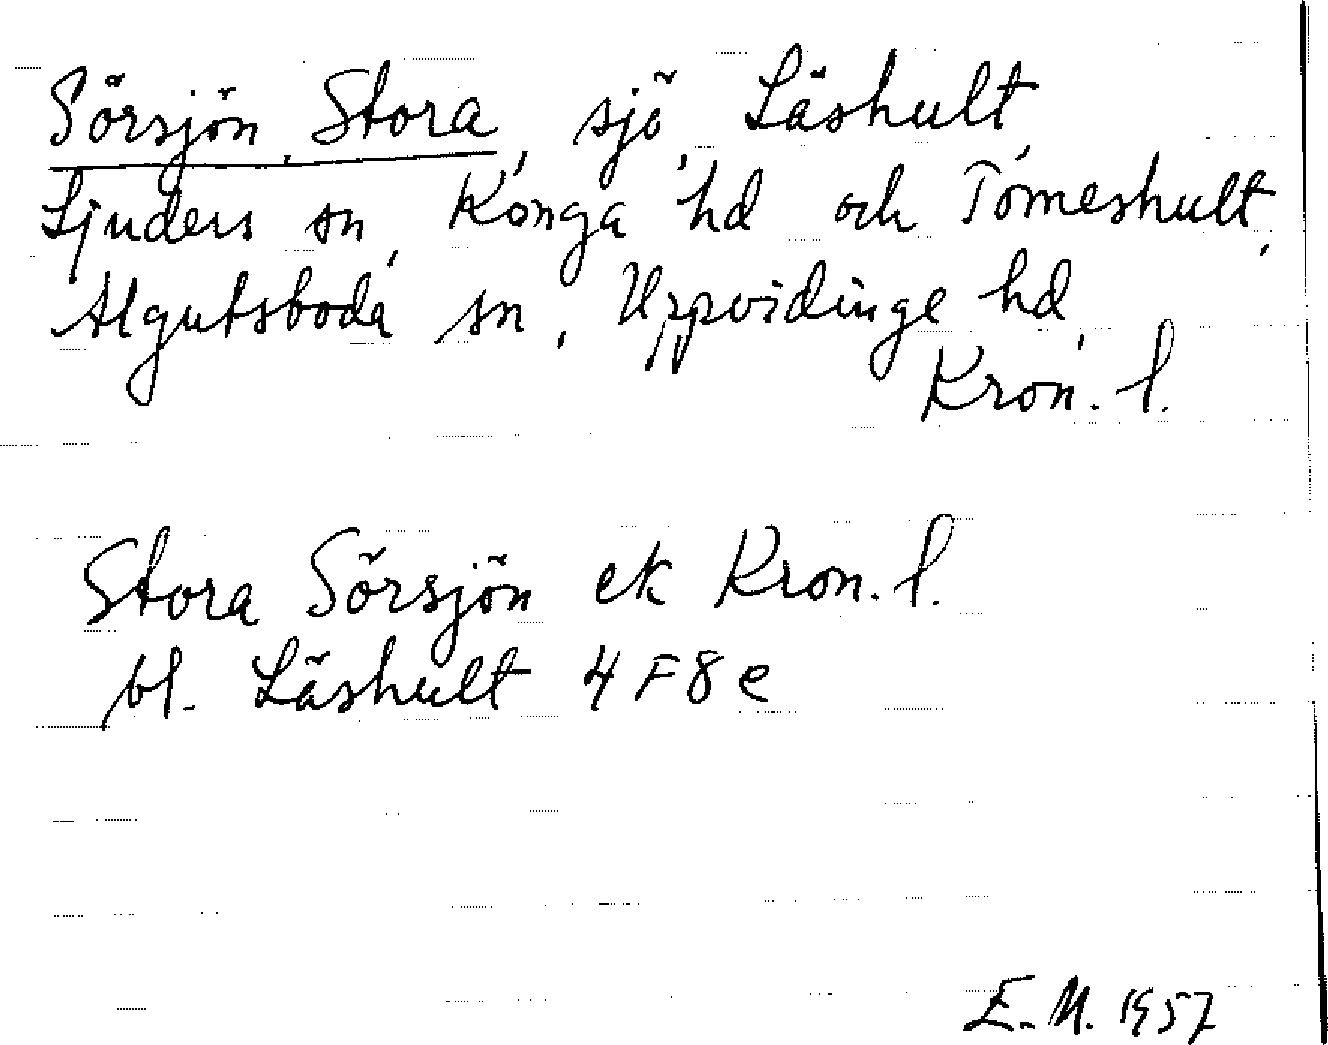 Sörsjön, Stora, sjö, Läshult,
Ljuders sn, Konga hd och Tomeshult,
Algutsboda sn, Uppvidinge hd,
Kron. l.
Stora Sörsjön ek Kron. l.
bl. Läshult 4 F 8 e
E. M. 1957